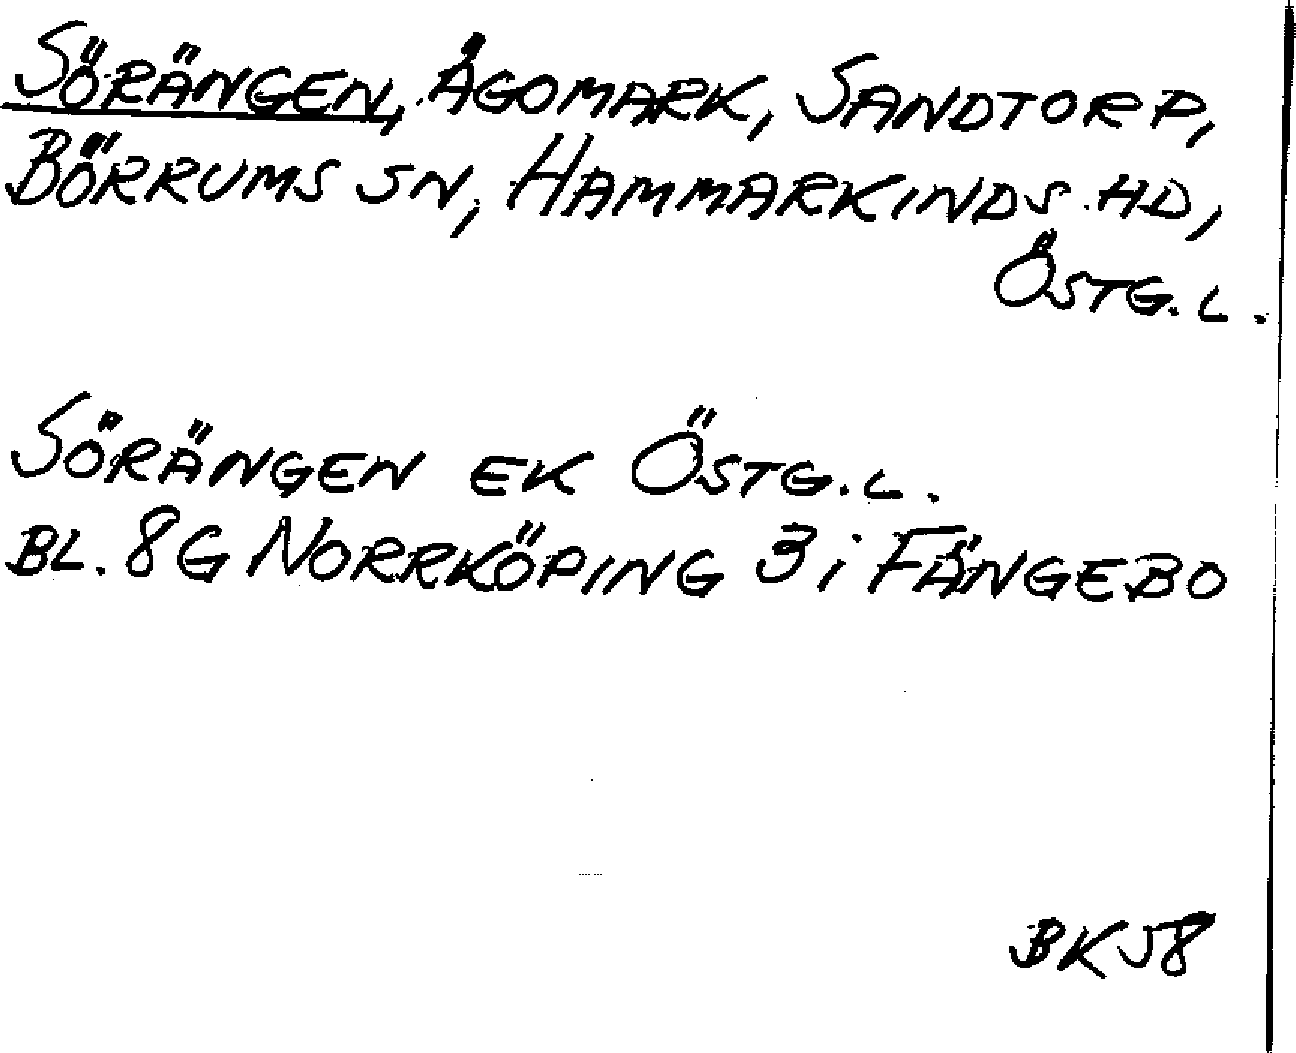 SÖRÄNGEN, ÄGOMARK, SANDTORP,
BÖRRUMS SN, HAMMARKINDS HD,
ÖSTG. L.
SÖRÄNGEN EK ÖSTG. L.
BL. 8G NORRKÖPING 3i FÄNGEBO
BK58